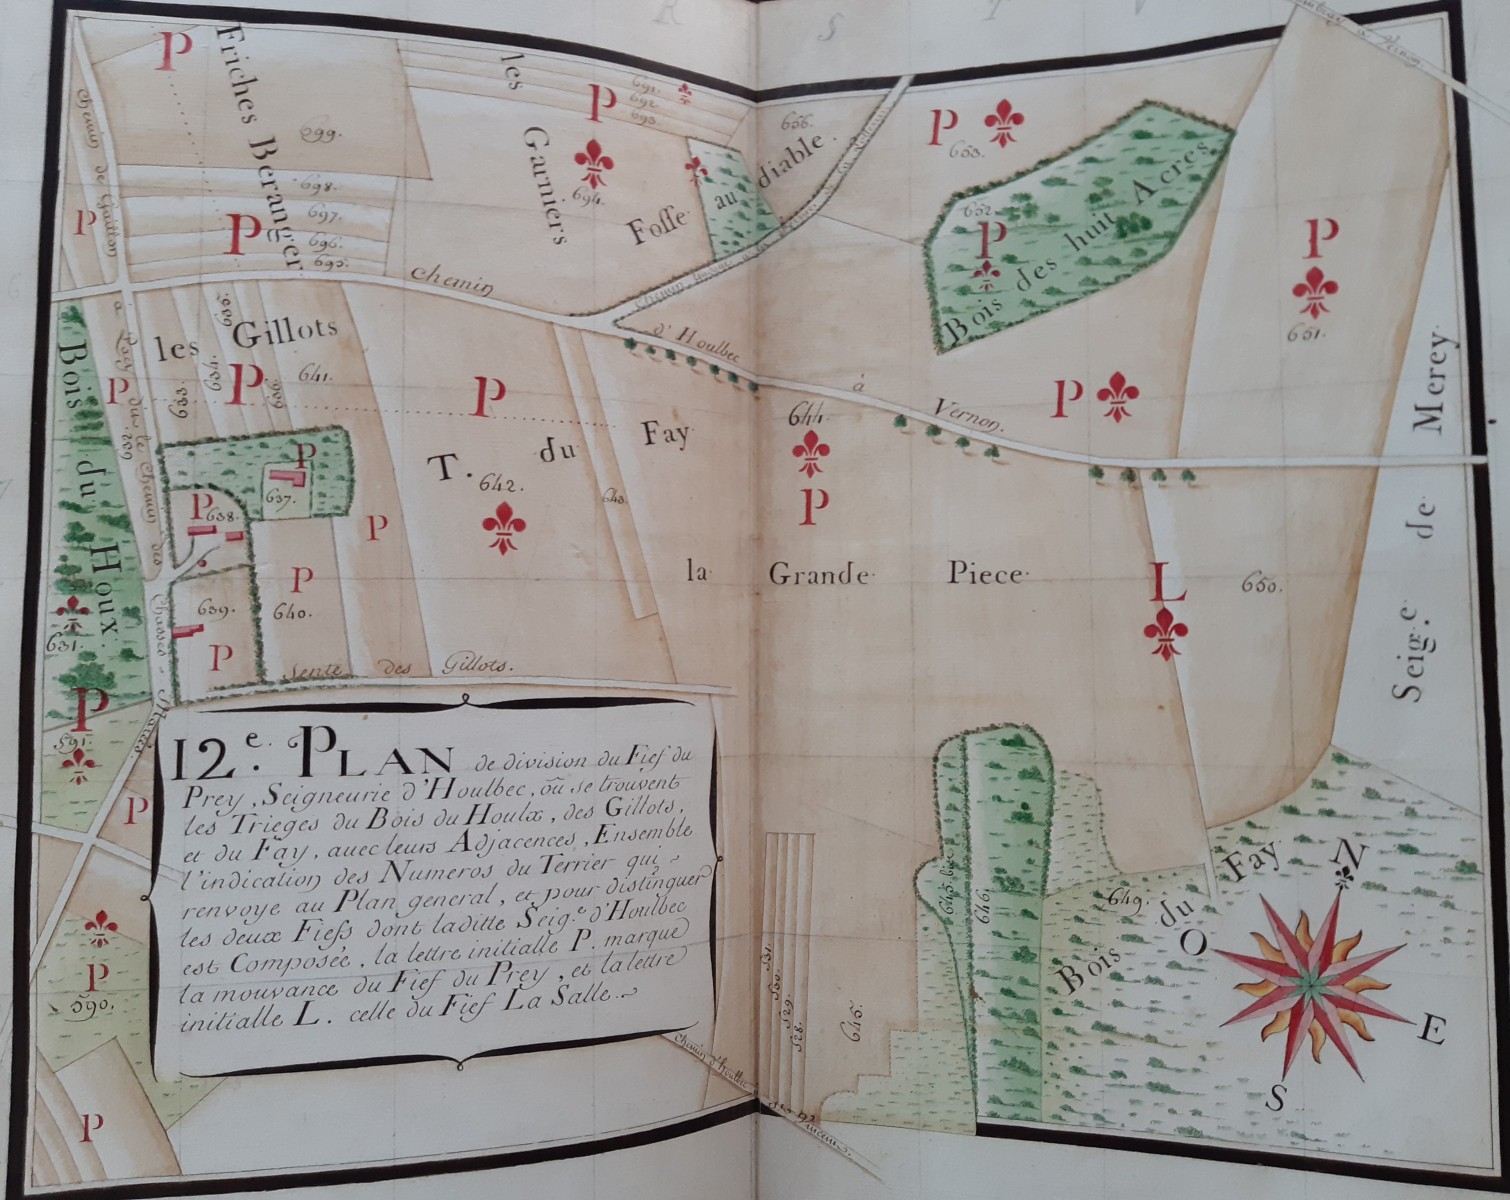 R S T V
à Vernon
P
Friches Beranger
les Garniers
691.
692.
693.
P
694.
699.
698.
697.
696.
695.
P
P
Chemin de Gaillon
Fosse au diable
656.
P
653.
652.
P
Bois des huit Acres
P
651.
Seig.e de Merey
Chemin d'Houlbec à Vernon
les Gillots
633.
634.
641.
632.
P
P
P
P
T. du Fay
642.
643.
644.
P
P
la Grande Piece
L
650.
Bois du Houx
631.
P
591.
P
637.
P
638.
P
639.
P
640.
P
Sente des Gillots.
12e. PLAN de division du Fief du
Prey, Seigneurie d'Houlbec, où se trouvent
les Trieges du Bois du Houlx, des Gillots,
et du Fay, avec leurs Adjacences, Ensemble
l'indication des Numeros du Terrier qui
renvoye au Plan general, et pour distinguer
les deux Fiefs dont laditte Seig.e d'Houlbec
est Composée, la lettre initialle P. marque
la mouvance du Fief du Prey, et la lettre
initialle L. celle du Fief La Salle.
P
P
590.
P
Chemin d'houlbec
531.
530.
529.
528.
645.
645 bis
646.
649.
Bois du Fay
N
O
E
S